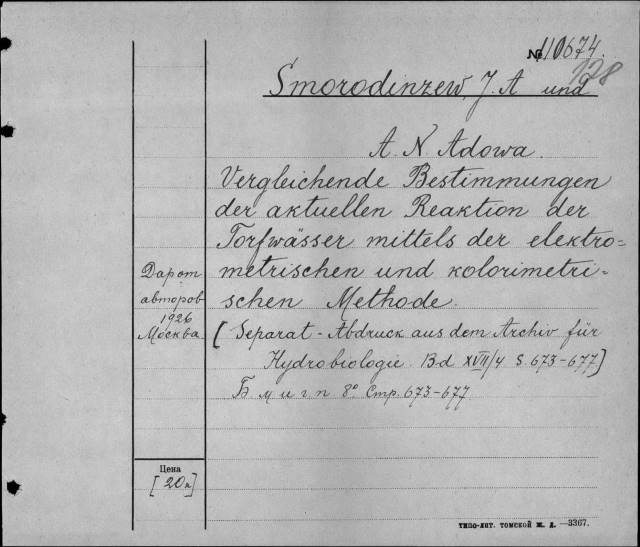 № 110674.
128
Smorodinzew, J. A und
A. N. Adowa.
Vergleichende Bestimmungen
der aktuellen Reaktion der
Torfwässer mittels der elektro-
metrischen und kolorimetri-
schen Methode.
[Separat-Abdruck aus dem Archiv für
Hydrobiologie Bd XVII/4 S. 673-677]
Б. м и г п 8° Стр. 673-677
Дар от
авторов
1926
Москва
Цена
[20к]
ТИПО-ЛИТ. ТОМСКОЙ Ж. Д. —3367.